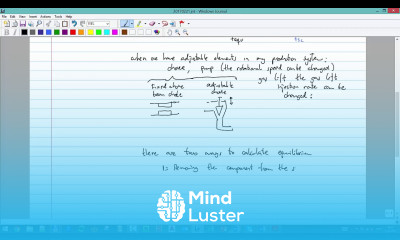 when we have adjustable elements in my production system:
choke, pump (the rotational speed can be changed)
gas lift the gas lift
injection rate can be
changed:
Fixed choke
bean choke
adjustable
choke
there are two ways to calculate equilibrium
1: Removing the component from the s
Mind
Luster